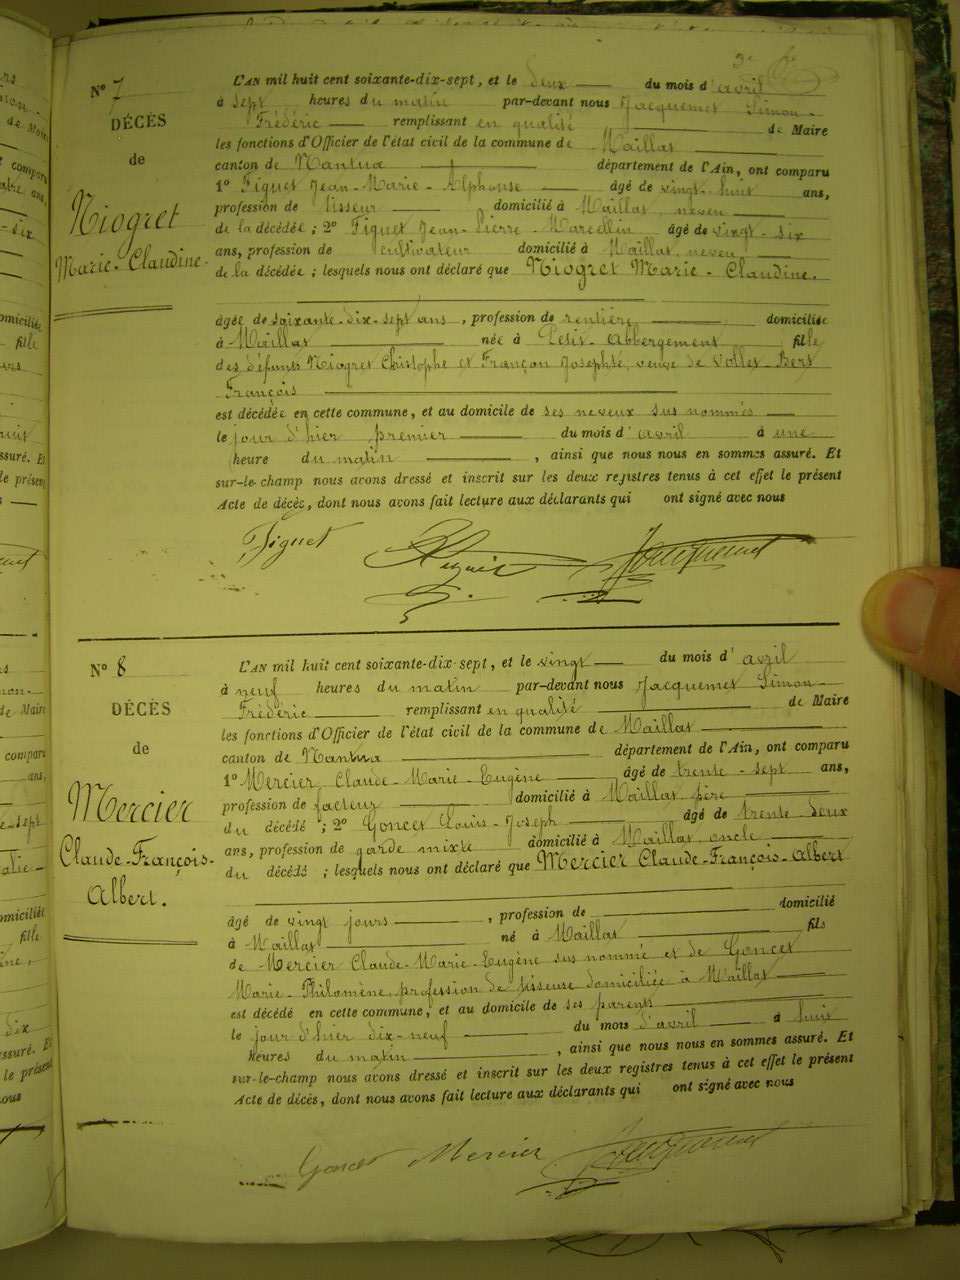 N° 7
DÉCÈS
de
Niogret
Marie-Claudine.
L'AN mil huit cent soixante-dix-sept, et le deux du mois d'avril
à sept heures du matin par-devant nous Jacquemet Simon-
Frédéric remplissant en qualité de Maire
les fonctions d'Officier de l'état civil de la commune de Maillat
canton de Nantua département de l'Ain, ont comparu
1° Figuet Jean-Marie-Alphonse âgé de vingt-huit ans,
profession de tisseur domicilié à Maillat, neveu
de la décédée ; 2° Figuet Jean-Pierre-Marcellin âgé de vingt-six
ans, profession de cultivateur domicilié à Maillat, neveu
de la décédée ; lesquels nous ont déclaré que Niogret Marie-Claudine.
âgée de soixante-dix-sept ans, profession de rentière domiciliée
à Maillat née à Petit-Abbergement fille
des défunts Niogret Christophe et Françon Josephte, veuve de Vollet-Bert
François
est décédée en cette commune, et au domicile de ses neveux sus nommés
le jour d'hier premier du mois d'avril à une
heure du matin, ainsi que nous nous en sommes assuré. Et
sur-le-champ nous avons dressé et inscrit sur les deux registres tenus à cet effet le présent
Acte de décès, dont nous avons fait lecture aux déclarants qui ont signé avec nous
Figuet Figuet Jacquemet
N° 8
DÉCÈS
de
Mercier
Claude-François-
Albert.
L'AN mil huit cent soixante-dix-sept, et le vingt du mois d'avril
à neuf heures du matin par-devant nous Jacquemet Simon-
Frédéric remplissant en qualité de Maire
les fonctions d'Officier de l'état civil de la commune de Maillat
canton de Nantua département de l'Ain, ont comparu
1° Mercier Claude-Marie-Eugène âgé de trente-sept ans,
profession de facteur domicilié à Maillat père
du décédé ; 2° Goncet Louis-Joseph âgé de trente deux
ans, profession de garde mixte domicilié à Maillat oncle
du décédé ; lesquels nous ont déclaré que Mercier Claude-François-Albert
âgé de vingt jours, profession de domicilié
à Maillat né à Maillat fils
de Mercier Claude-Marie-Eugène sus nommé et de Goncet
Marie-Philomène, profession de tisseuse domiciliée à Maillat
est décédé en cette commune, et au domicile de ses parents
le jour d'hier dix-neuf du mois d'avril à huit
heures du matin, ainsi que nous nous en sommes assuré. Et
sur-le-champ nous avons dressé et inscrit sur les deux registres tenus à cet effet le présent
Acte de décès, dont nous avons fait lecture aux déclarants qui ont signé avec nous
Goncet Mercier Jacquemet